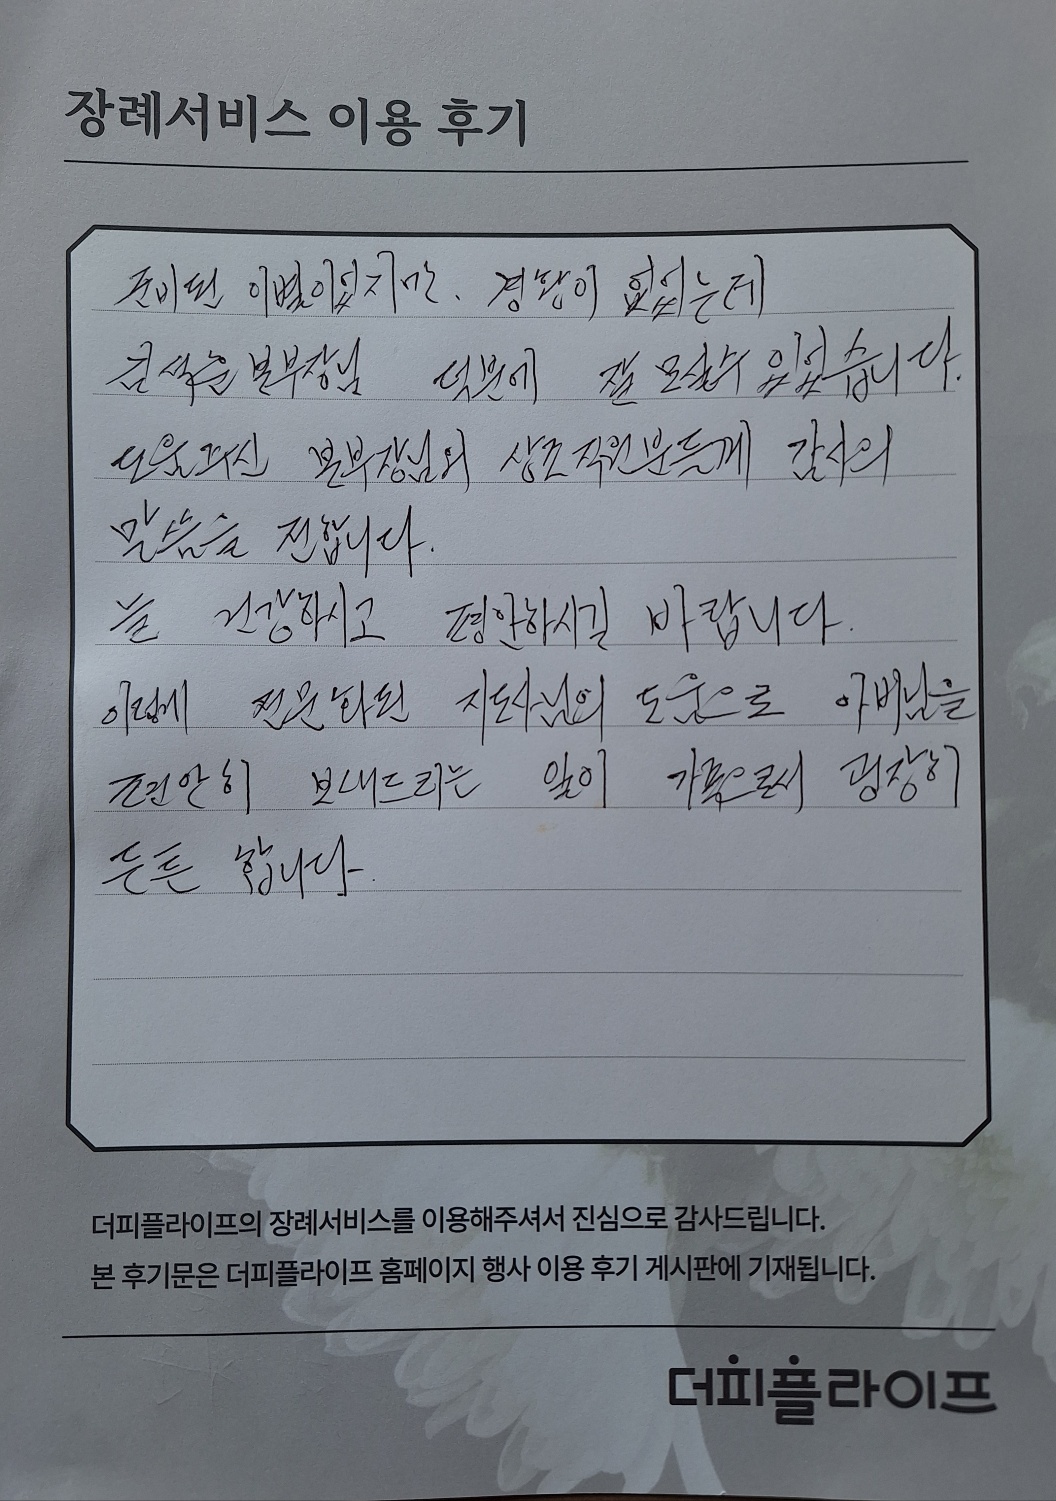 장례서비스 이용 후기
준비된 이별이었지만. 경황이 없었는데
본부장님 덕분에 잘 모실수 있었습니다.
도움주신 본부장님외 상조직원분들께 감사의
말씀을 전합니다.
늘 건강하시고 평안하시길 바랍니다.
이렇게 전문화된 지도사님의 도움으로 아버님을
편안히 보내드리는 일이 가족으로서 굉장히
든든 합니다.
더피플라이프의 장례서비스를 이용해주셔서 진심으로 감사드립니다.
본 후기문은 더피플라이프 홈페이지 행사 이용 후기 게시판에 기재됩니다.
더피플라이프